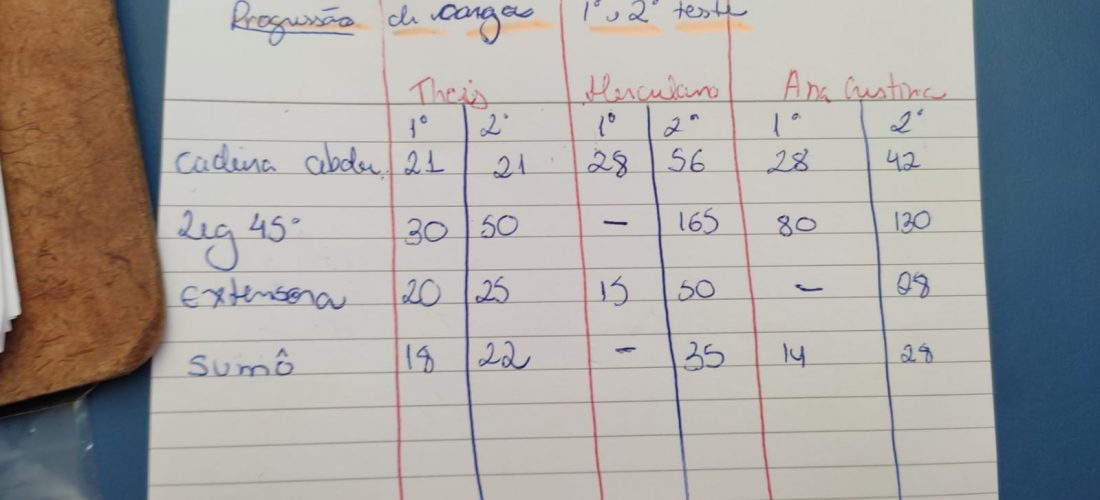 Progressão de cargas 1º e 2º teste
Thais Herculano Ana Cristina
1º 2º 1º 2º 1º 2º
Cadeira abdu. 21 21 28 56 28 42
Leg 45º 30 50 – 165 80 130
Extensora 20 25 15 50 – 28
Sumô 18 22 – 35 14 28